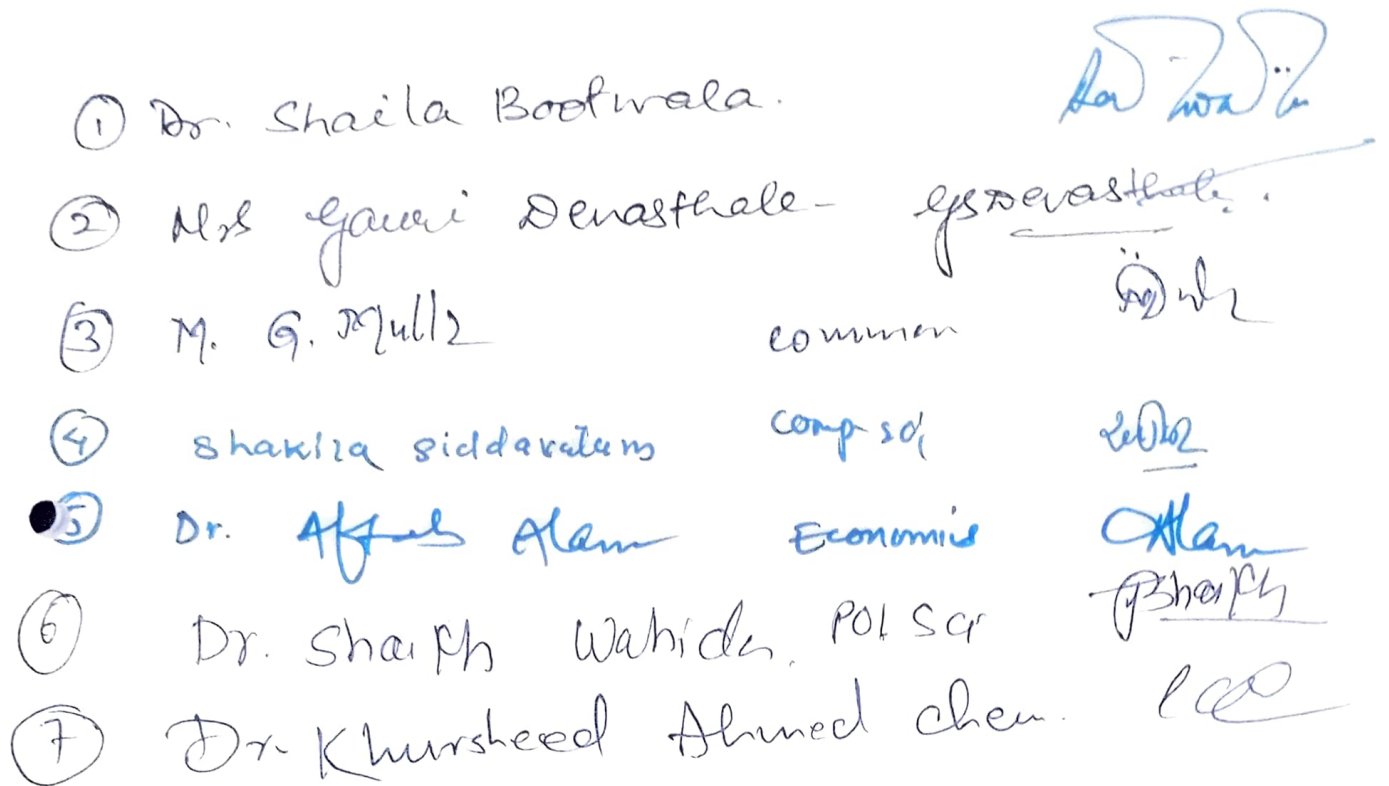 ① Dr. Shaila Bootwala.
② Mrs Gauri Devasthale - GSDevasthale.
③ M. G. Mulla common
④ shakila siddavatam comp sci
⑤ Dr. Alam Economics Alam
⑥ Dr. Shaikh Wahida. POl Sci Shaikh
⑦ Dr. Khursheed Ahmed chem.